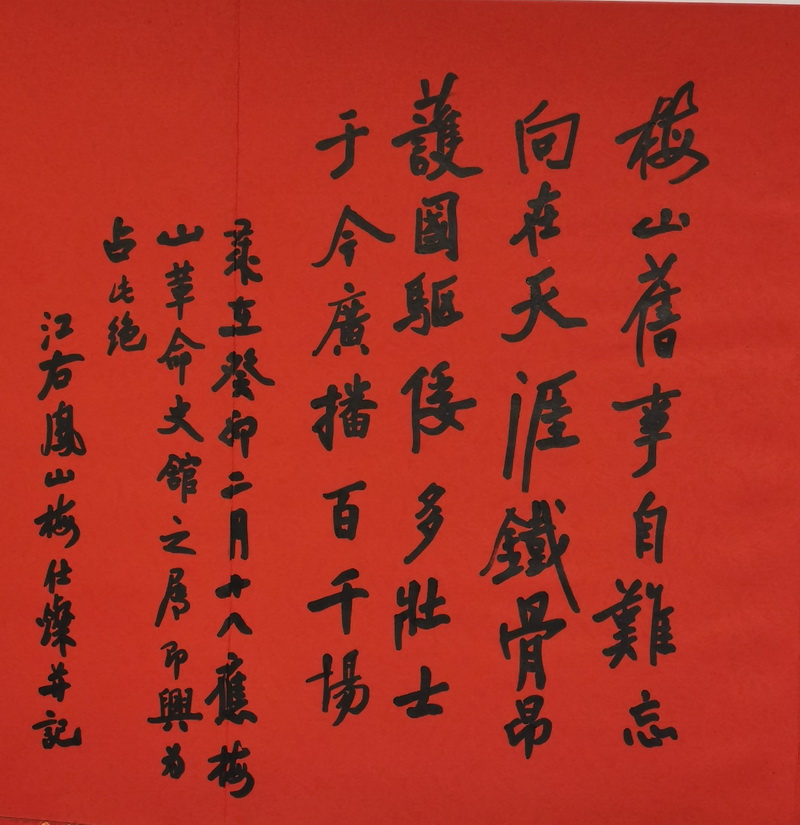 梅山舊事自難忘
向在天涯鐵骨昂
護國驅倭多壯士
于今廣播百千場
歲在癸卯二月十八應梅
山革命史館之屬即興為
占此绝
江右鳳山梅仕燦并記